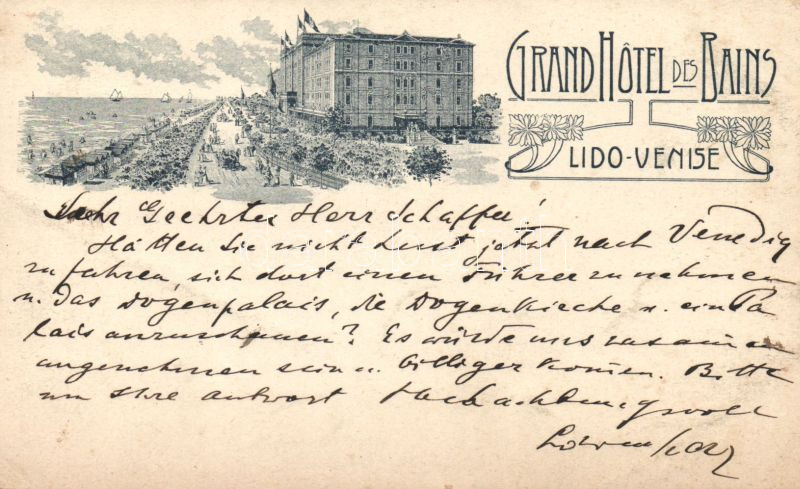 GRAND HÔTEL DES BAINS
LIDO-VENISE
Sehr Geehrtes Herr Schaffer!
Hätten Sie nicht Lust jetzt nach Venedig
zu fahren, sich dort einen Führer zu nehmen
u. das Dogenpalais, die Dogenkirche u. ein Pa
lais anzuschauen? Es würde uns zusammen
angenehmen sein u. billiger kommen. Bitte
um Ihre Antwort Hochachtungsvoll